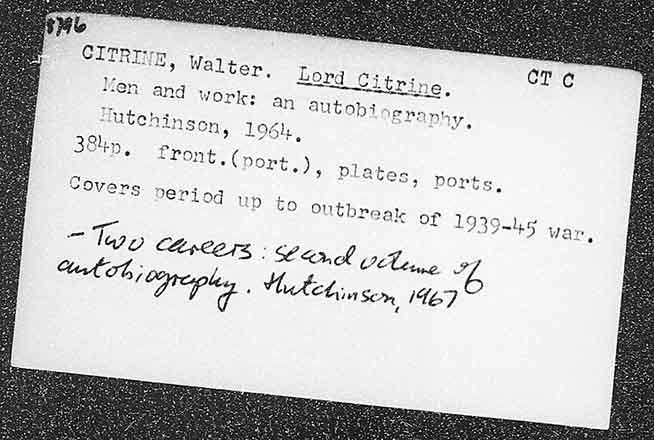 8796
CITRINE, Walter. Lord Citrine. CT C
Men and work: an autobiography.
Hutchinson, 1964.
384p. front.(port.), plates, ports.
Covers period up to outbreak of 1939-45 war.
- Two careers: second volume of
autobiography. Hutchinson, 1967